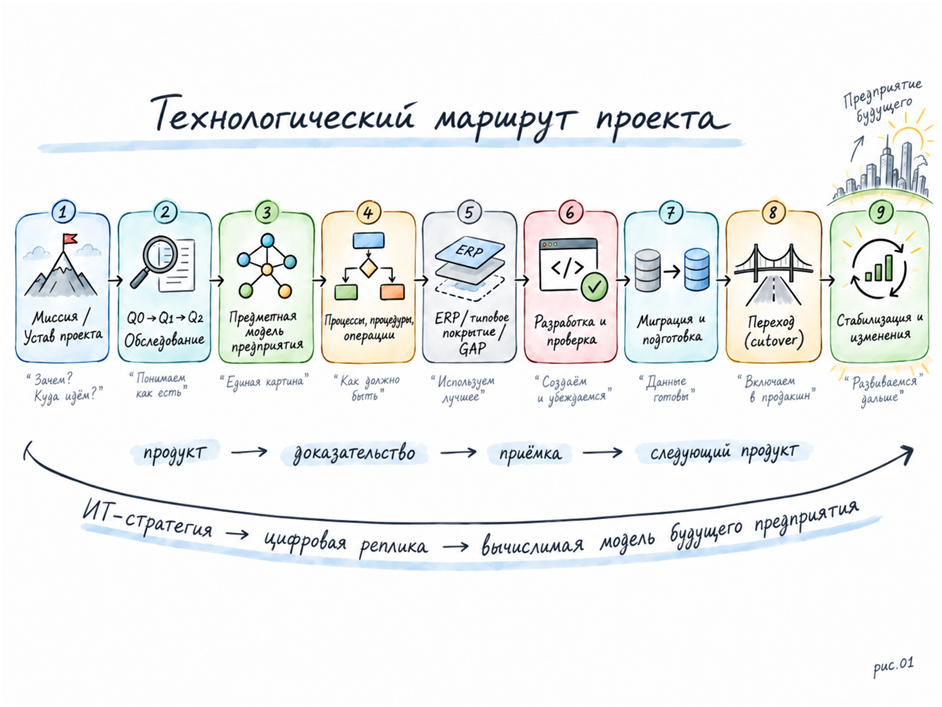 Технологический маршрут проекта
Предприятие
будущего
1
Миссия /
Устав проекта
"Зачем?
Куда идём?"
2
Q0 → Q1 → Q2
Обследование
"Понимаем
как есть"
3
Предметная
модель
предприятия
"Единая картина"
4
Процессы, процедуры,
операции
"Как должно
быть"
5
ERP
ERP / типовое
покрытие /
GAP
"Используем
лучшее"
6
</>
Разработка и
проверка
"Создаём
и убеждаемся"
7
Миграция и
подготовка
"Данные
готовы"
8
Переход
(cutover)
"Включаем
в продакшн"
9
Стабилизация и
изменения
"Развиваемся
дальше"
продукт → доказательство → приёмка → следующий продукт
ИТ-стратегия → цифровая реплика → вычислимая модель будущего предприятия
рис.01